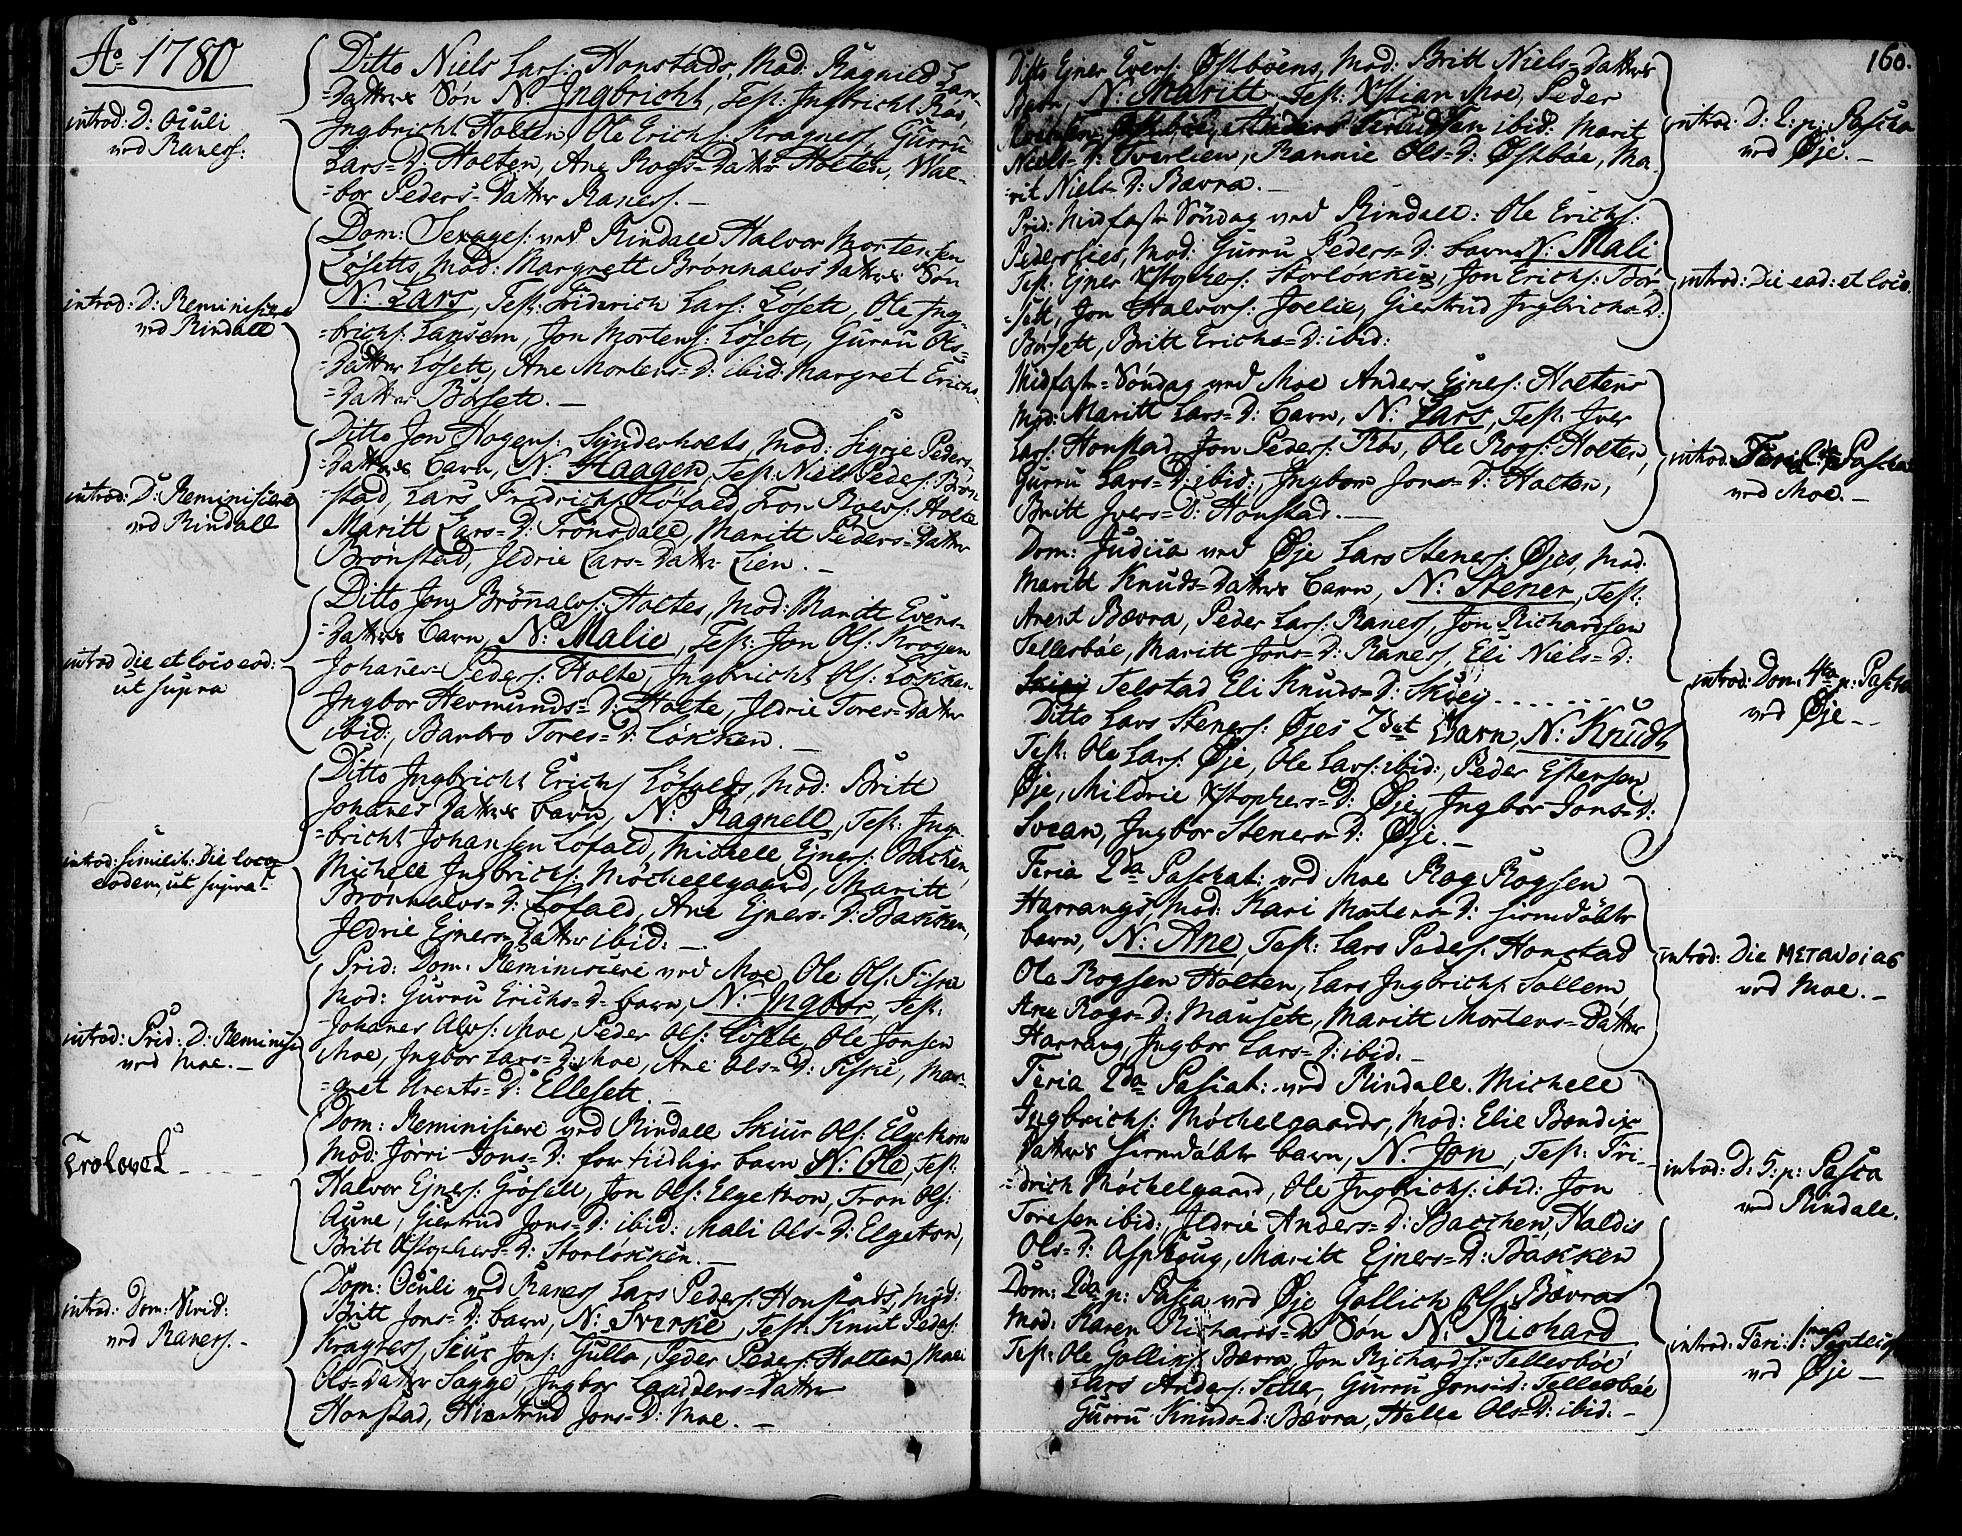 Ao 1780
introd: D: Oculi
ved Raness:
Ditto Niels Lars: Honstads, Mod: Ragnild Lars-
=Datters Søn N: Ingbricht, Test: Ingbricht Røv,
Ingbricht Holten, Ole Erichs: Kragness, Gurru
Lars=D: Holten, Ane Rogs=Datter Holten, Wal-
=bor Peders=Datter Raness. –
introd: D: Reminiscere
ved Rindall
Dom: Sexages: ved Rindall Halvor Mortensen
Løsetts, Mod: Margrett Brønhalvs Datters Søn
N: Lars, Test: Friderich Lars: Løsett, Ole Ing-
=brichs: Langsem, Jon Mortens: Løsett, Gurru Ols=
=Datter Løsett, Ane Mortens=D: ibid: Margret Erichs-
=Datter Börsett. –
introd: D: Reminiscere
ved Rindall
Ditto Jon Hogens: Synderholts, Mod: Sigrje Peders-
=Datters barn, N: Haagen, Test: Niels Peders: Brøn
stad, Lars Fredrichs: Løfald, Tron Roevs: Holte
Maritt Lars=D: Trønsdale, Maritt Peders=Datter
Brønstad, Jldrie Lars=Datter Lien. –
introd die et loco eod:
ut supra
Ditto Jon Brønalvs: Holtes, Mod: Maritt Evens=
=Datters barn, N: Malie, Test: Jon Ols: Krogen
Johanes Peders: Holte, Ingbricht Ols: Løkken
Ingbor Hermunds=D: Holte, Jldrie Tores=Datter
ibid:, Barbro Tores=D: Løkken. –
introd: similit: Die loco
eodem, ut supra
Ditto Ingbricht Erichs Løfalds, Mod: Britt
Johanes Datters barn, N: Ragnell, Test: Ing-
=bricht Johansen Løfald, Michell Ejners: Bachen,
Michell Ingbrichs: Møchellgaard, Maritt
Brønhalvs=D: Løfald, Ane Ejners=D: Backken,
Jldrie Ejners=Datter ibid: –
introd: Prid: D: Reminisc
ved Moe. –
Prid: Dom: Reminiscere ved Moe Ole Ols: Fiske
Mod: Gurru Erichs=D: barn, N: Ingbor, Test:
Johanes Alvs: Moe, Peder Ols: Løsett, Ole Jonsen
Moe, Ingbor Lars=D: Moe, Ane Ols=D: Fiske, Mar-
=gret Arents=D: Ellesett. –
Dom: Reminiscere ved Rindall Skiur Ols: Elgetrons
Mod: Jörri Jons=D: for tiidlige barn N: Ole, Test:
Halvor Ejners: Grøsett, Jon Ols: Elgetron, Tron Ols:
Aune, Giertrud Jons=D: ibid: Mali Ols=D: Elgeton,
Britt Xstophers=D: Storløkken. –
introd: Dom: Qvid:
ved Raness. –
Dom: Oculi ved Raness Lars Peders: Honstads, Mod:
Britt Jons=D: barn, N: Sverke, Test: Knut Peders:
Kragness, Siur Jons: Gulla, Peder Peders: Holten, Mali
Ols=Datter Sagge, Ingbor Gardens=Datter
Honstad, Hiertrud Jons=D: Moe. –
160.
Ditto Ejner Evens: Østbøens, Mod: Britt Niels=Datters
Barn, N: Maritt, Test: Xstian Moe, Peder
ibid: Marit
Niels=D: Tverlien, Rannie Ols=D: Østbøe, Ma-
=rit Niels=D: Bævra. –
introd: D: 2: p: Pascha
ved Øje. –
Prid: Midfast Söndag ved Rindall: Ole Erichs:
Pederslies, Mod: Gurru Peders=D: barn N: Mali
Test: Ejner Xstophers: Storløkken, Jon Erichs: Bör-
=sett, Jon Halvors: Joelie, Giertrud Ingbrichs=D:
Börsett, Britt Erichs=D: ibid:
introd: Die ead: et loco.
Midfast=Söndag ved Moe Anders Ejners: Holtens
Mod: Maritt Lars=D: barn, N: Lars, Test: Jver
Lars: Honstad, Jon Peders: Röv, Ole Rogs: Holten,
Gurru Lars=D: ibid:, Ingbor Jons=D: Holten,
Britt Jvers=D: Honstad. –
introd: Feria Pascha
ved Moe. –
Dom: Judica ved Øje Lars Steners: Øjes, Mod:
Maritt Knuds=Datters barn, N: Stener, Test:
Arent Bævra, Peder Lars: Raness, Jon Richardsen
Tellesbøe, Maritt Jöns=D: Raness, Eli Niels=D:
Telstad Eli Knuds=D: Skiej. . . . . .
Ditto Lars Steners: Øjes 2det Barn, N: Knudt
Test: Ole Lars: Øje, Ole Lars: ibid:, Peder Estensen
Øje, Mildrie Xstophers=D: Øje, Ingbor Jons=D:
Svean, Ingbor Steners=D: Øje. –
introd: Dom: 4ta p: Pascha
ved Øje –
Feria 2da Paschat: ved Moe Rog Rogsen
Harrangs, Mod: Kari Mortens=D: hiemdöbte
barn, N: Ane, Test: Lars Peders: Honstad
Ole Rogsen Holten, Lars Ingbrichs: Sollem,
Ane Rogs=D: Mausett, Maritt Mortens=Datter
Harrang, Ingbor Lars=D: ibid: –
introd: Die Μετανοιας
ved Moe. –
Feria 2da Pascat: ved Rindall. Michell
Ingbrichs: Møchelgaards, Mod: Elie Bendix
Datters hiemdöbte barn, N: Jon, Test: Fri-
=drich Møchelgaard, Ole Ingbrichs: ibid: Jon
Toresen ibid:, Jldrie Anders=D: Bacchen, Haldis
Ols=D: Asphoug, Maritt Ejners=D: Backken
introd: D: 5: p: Pasca
ved Rindale.
Dom: 2da p: Pasca ved Øje Gollich Ols: Bævras
Mod: Karen Richards=D: Søn N: Richard
Test: Ole Gollichs Bævra, Jon Richards: Tellesbøe
Lars Anders: Settr, Gurru Jons=D: Tellesbøe
Gurru Knuds=D: Bævra, Helle Ols=D: ibid: –
introd: Feri: 1ma Pentecost
ved Øje –